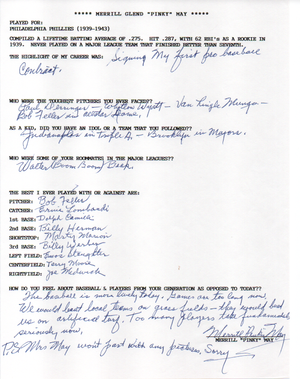 ***** MERRILL GLEND "PINKY" MAY *****
PLAYED FOR:
PHILADELPHIA PHILLIES (1939-1943)
COMPILED A LIFETIME BATTING AVERAGE OF .275. HIT .287, WITH 62 RBI's AS A ROOKIE IN
1939. NEVER PLAYED ON A MAJOR LEAGUE TEAM THAT FINISHED BETTER THAN SEVENTH.
THE HIGHLIGHT OF MY CAREER WAS: Signing My first pro baseball
Contract.
WHO WERE THE TOUGHEST PITCHERS YOU EVER FACED??
Paul Derringer - Whitlow Wyatt - Van Lingle Mungo -
Bob Feller in all star Game.
AS A KID, DID YOU HAVE AN IDOL OR A TEAM THAT YOU FOLLOWED??
Indianapolis in Triple A. - Brooklyn in Majors.
WHO WERE SOME OF YOUR ROOMMATES IN THE MAJOR LEAGUES??
Walter Boom Boom Beck
THE BEST I EVER PLAYED WITH OR AGAINST ARE:
PITCHER: Bob Feller
CATCHER: Ernie Lombardi
1st BASE: Dolph Camilli
2nd BASE: Billy Herman
SHORTSTOP: Marty Marion
3rd BASE: Billy Werber
LEFT FIELD: Enos Slaughter
CENTERFIELD: Terry Moore
RIGHTFIELD: Joe Medwick
HOW DO YOU FEEL ABOUT BASEBALL & PLAYERS FROM YOUR GENERATION AS OPPOSED TO TODAY??
The baseball is more lively today. Games are too long now
We would beat local teams on grass fields - they would beat
us on artificial turf. Too many players take fundamentals
seriously now.
Merrill Pinky May
MERRILL "PINKY" MAY
P.S. Mrs May won't part with any pictures. Sorry